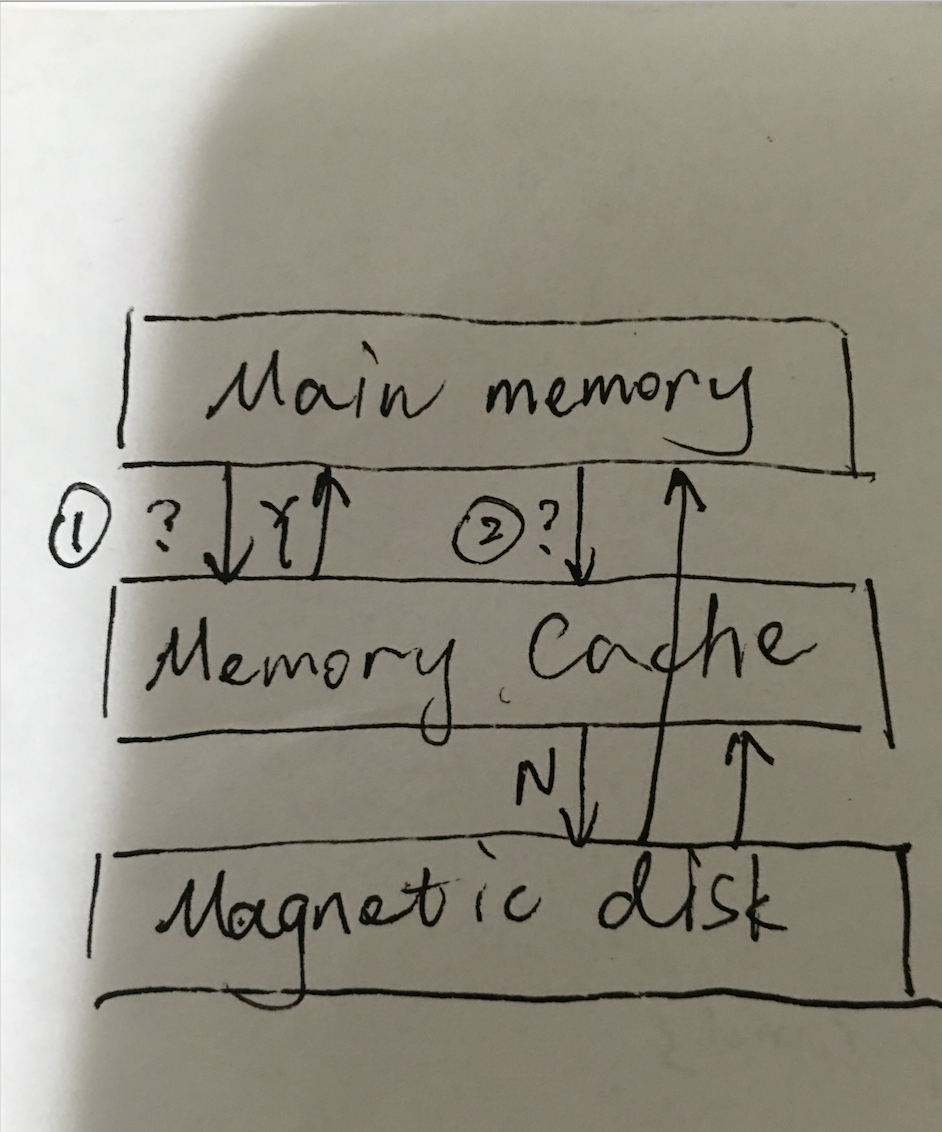 Main memory
① ? Y ② ?
Memory Cache
N
Magnetic disk